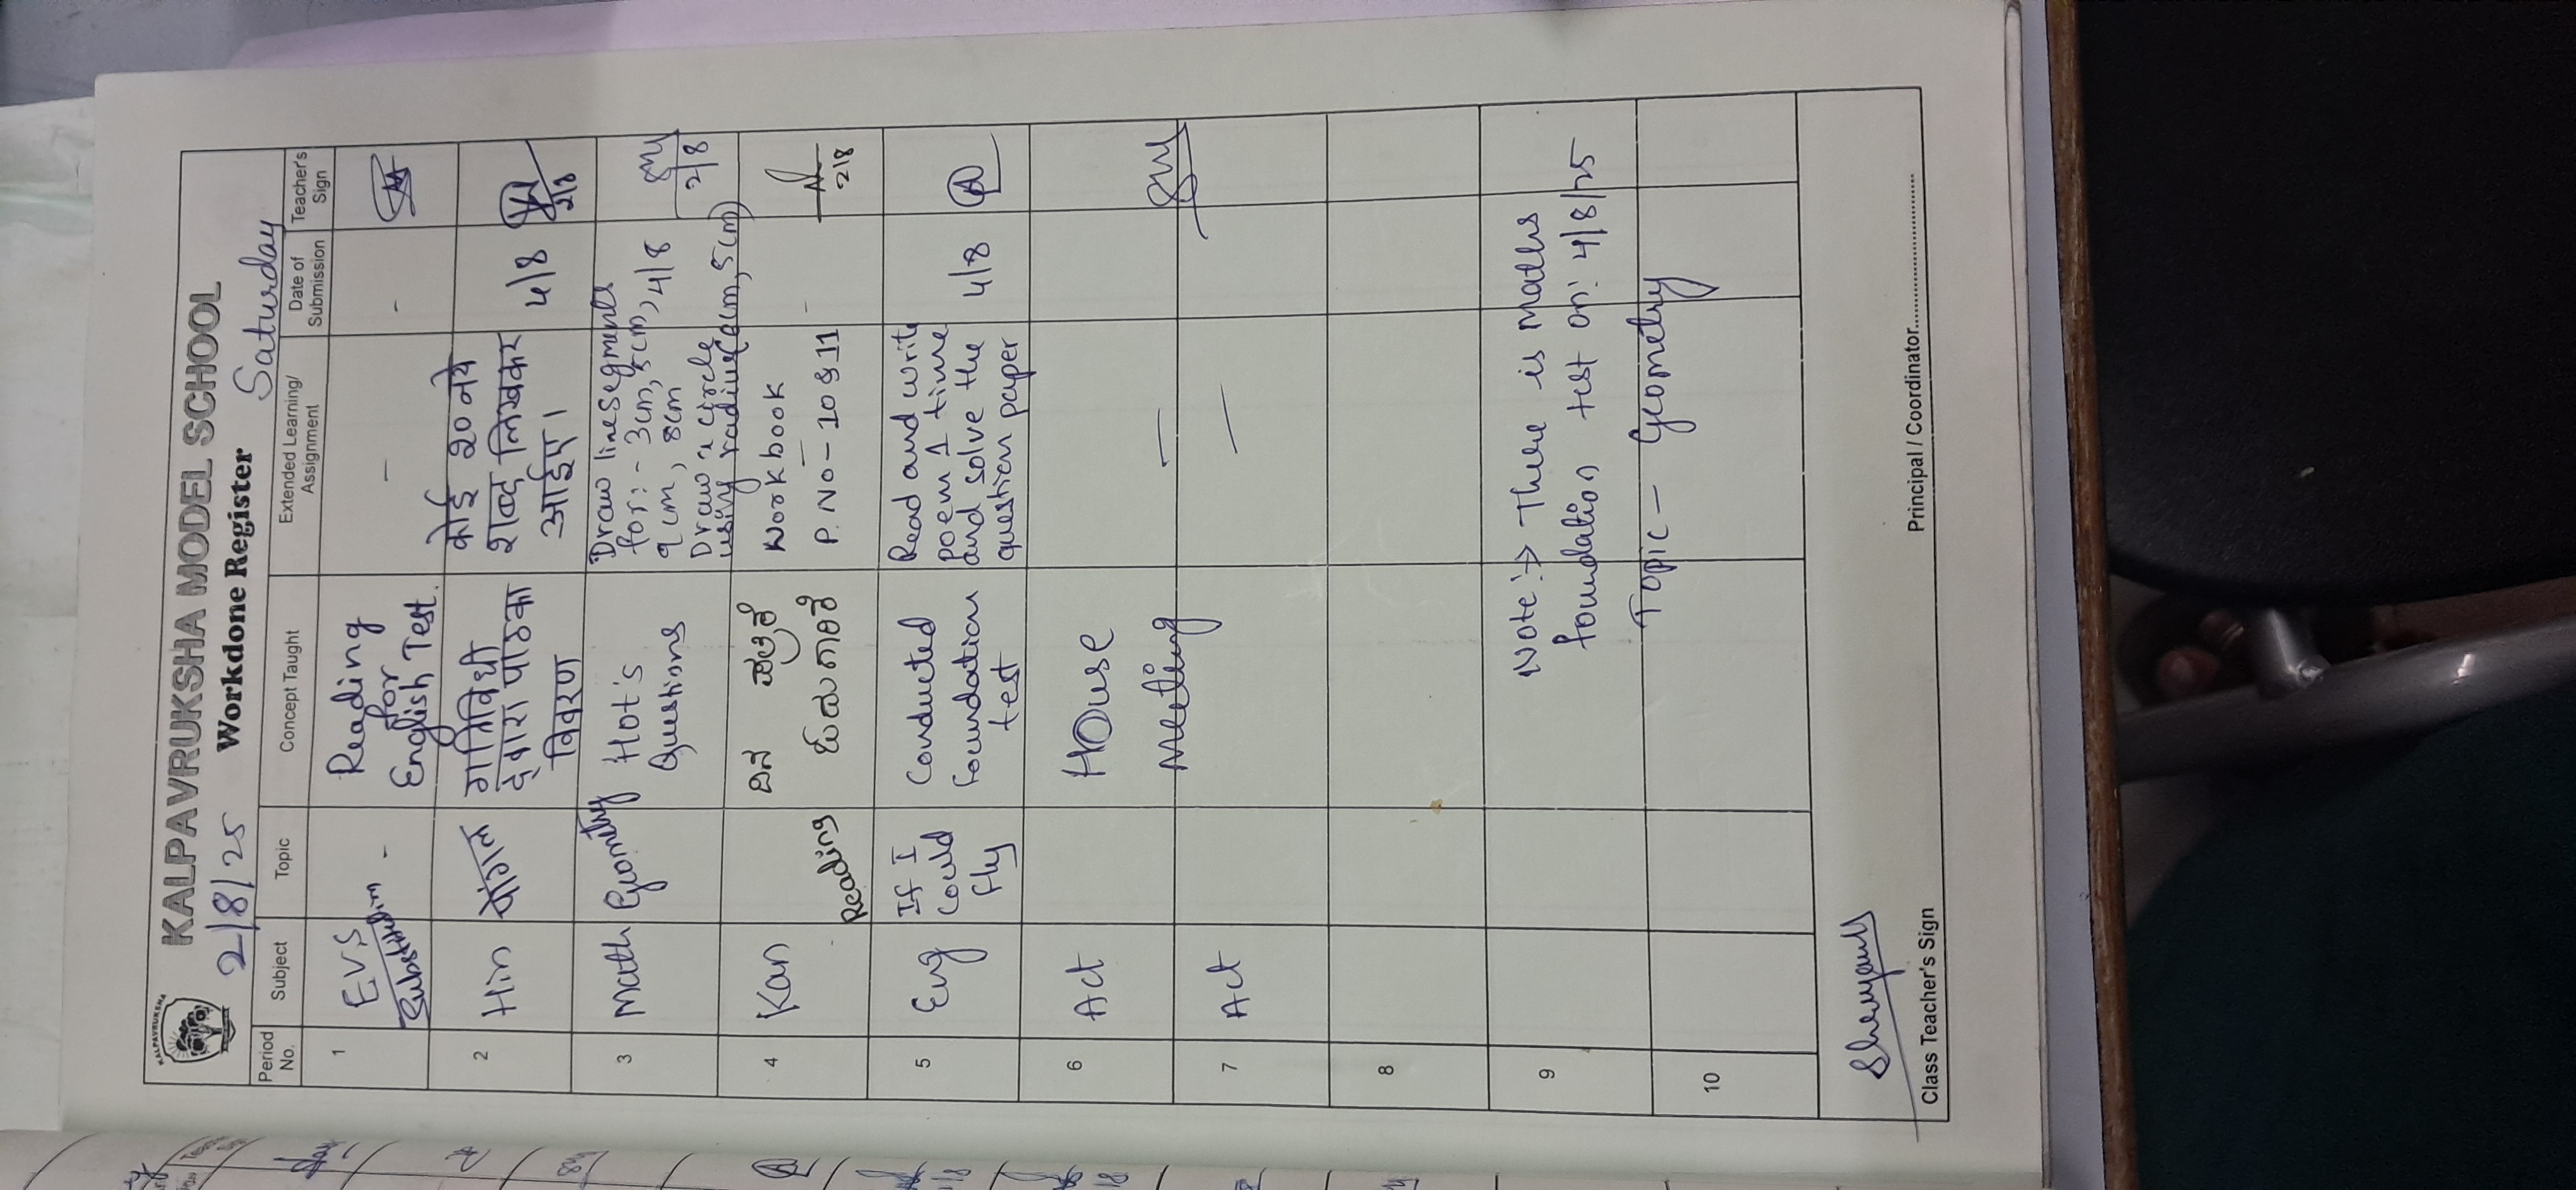 KALPAVRUKSHA
KALPAVRUKSHA MODEL SCHOOL
2/8/25 Workdone Register Saturday
Period No. Subject Topic Concept Taught Extended Learning/ Assignment Date of Submission Teacher's Sign
1 E.V.S - Reading - -
Substitution for
English Test.
2 Hin पोंगल गतिविधी कोई 20 नये 4/8
द्वारा पाठका शब्द लिखकर
विवरण आईए। 2/8
3 Math Geomtry Hot's Draw linesegments 4/8
Questions for:- 3cm, 5cm,
9 cm, 8cm 2/8
Draw a circle
using radius (6cm, 5cm)
4 Kan Reading ದಿನ ಪತ್ರಿಕೆ Workbook -
ಉಡುಗೊರೆ P. No - 10 & 11 2/8
5 Eng If I Conducted Read and write 4/8
Could foundation poem 1 time
fly test and solve the
question paper
6 Act House —
meeting
7 Act —
8
9 Note:→ There is Maths
foundation test on: 4/8/25
10 Topic - Geometry
Class Teacher's Sign Principal / Coordinator